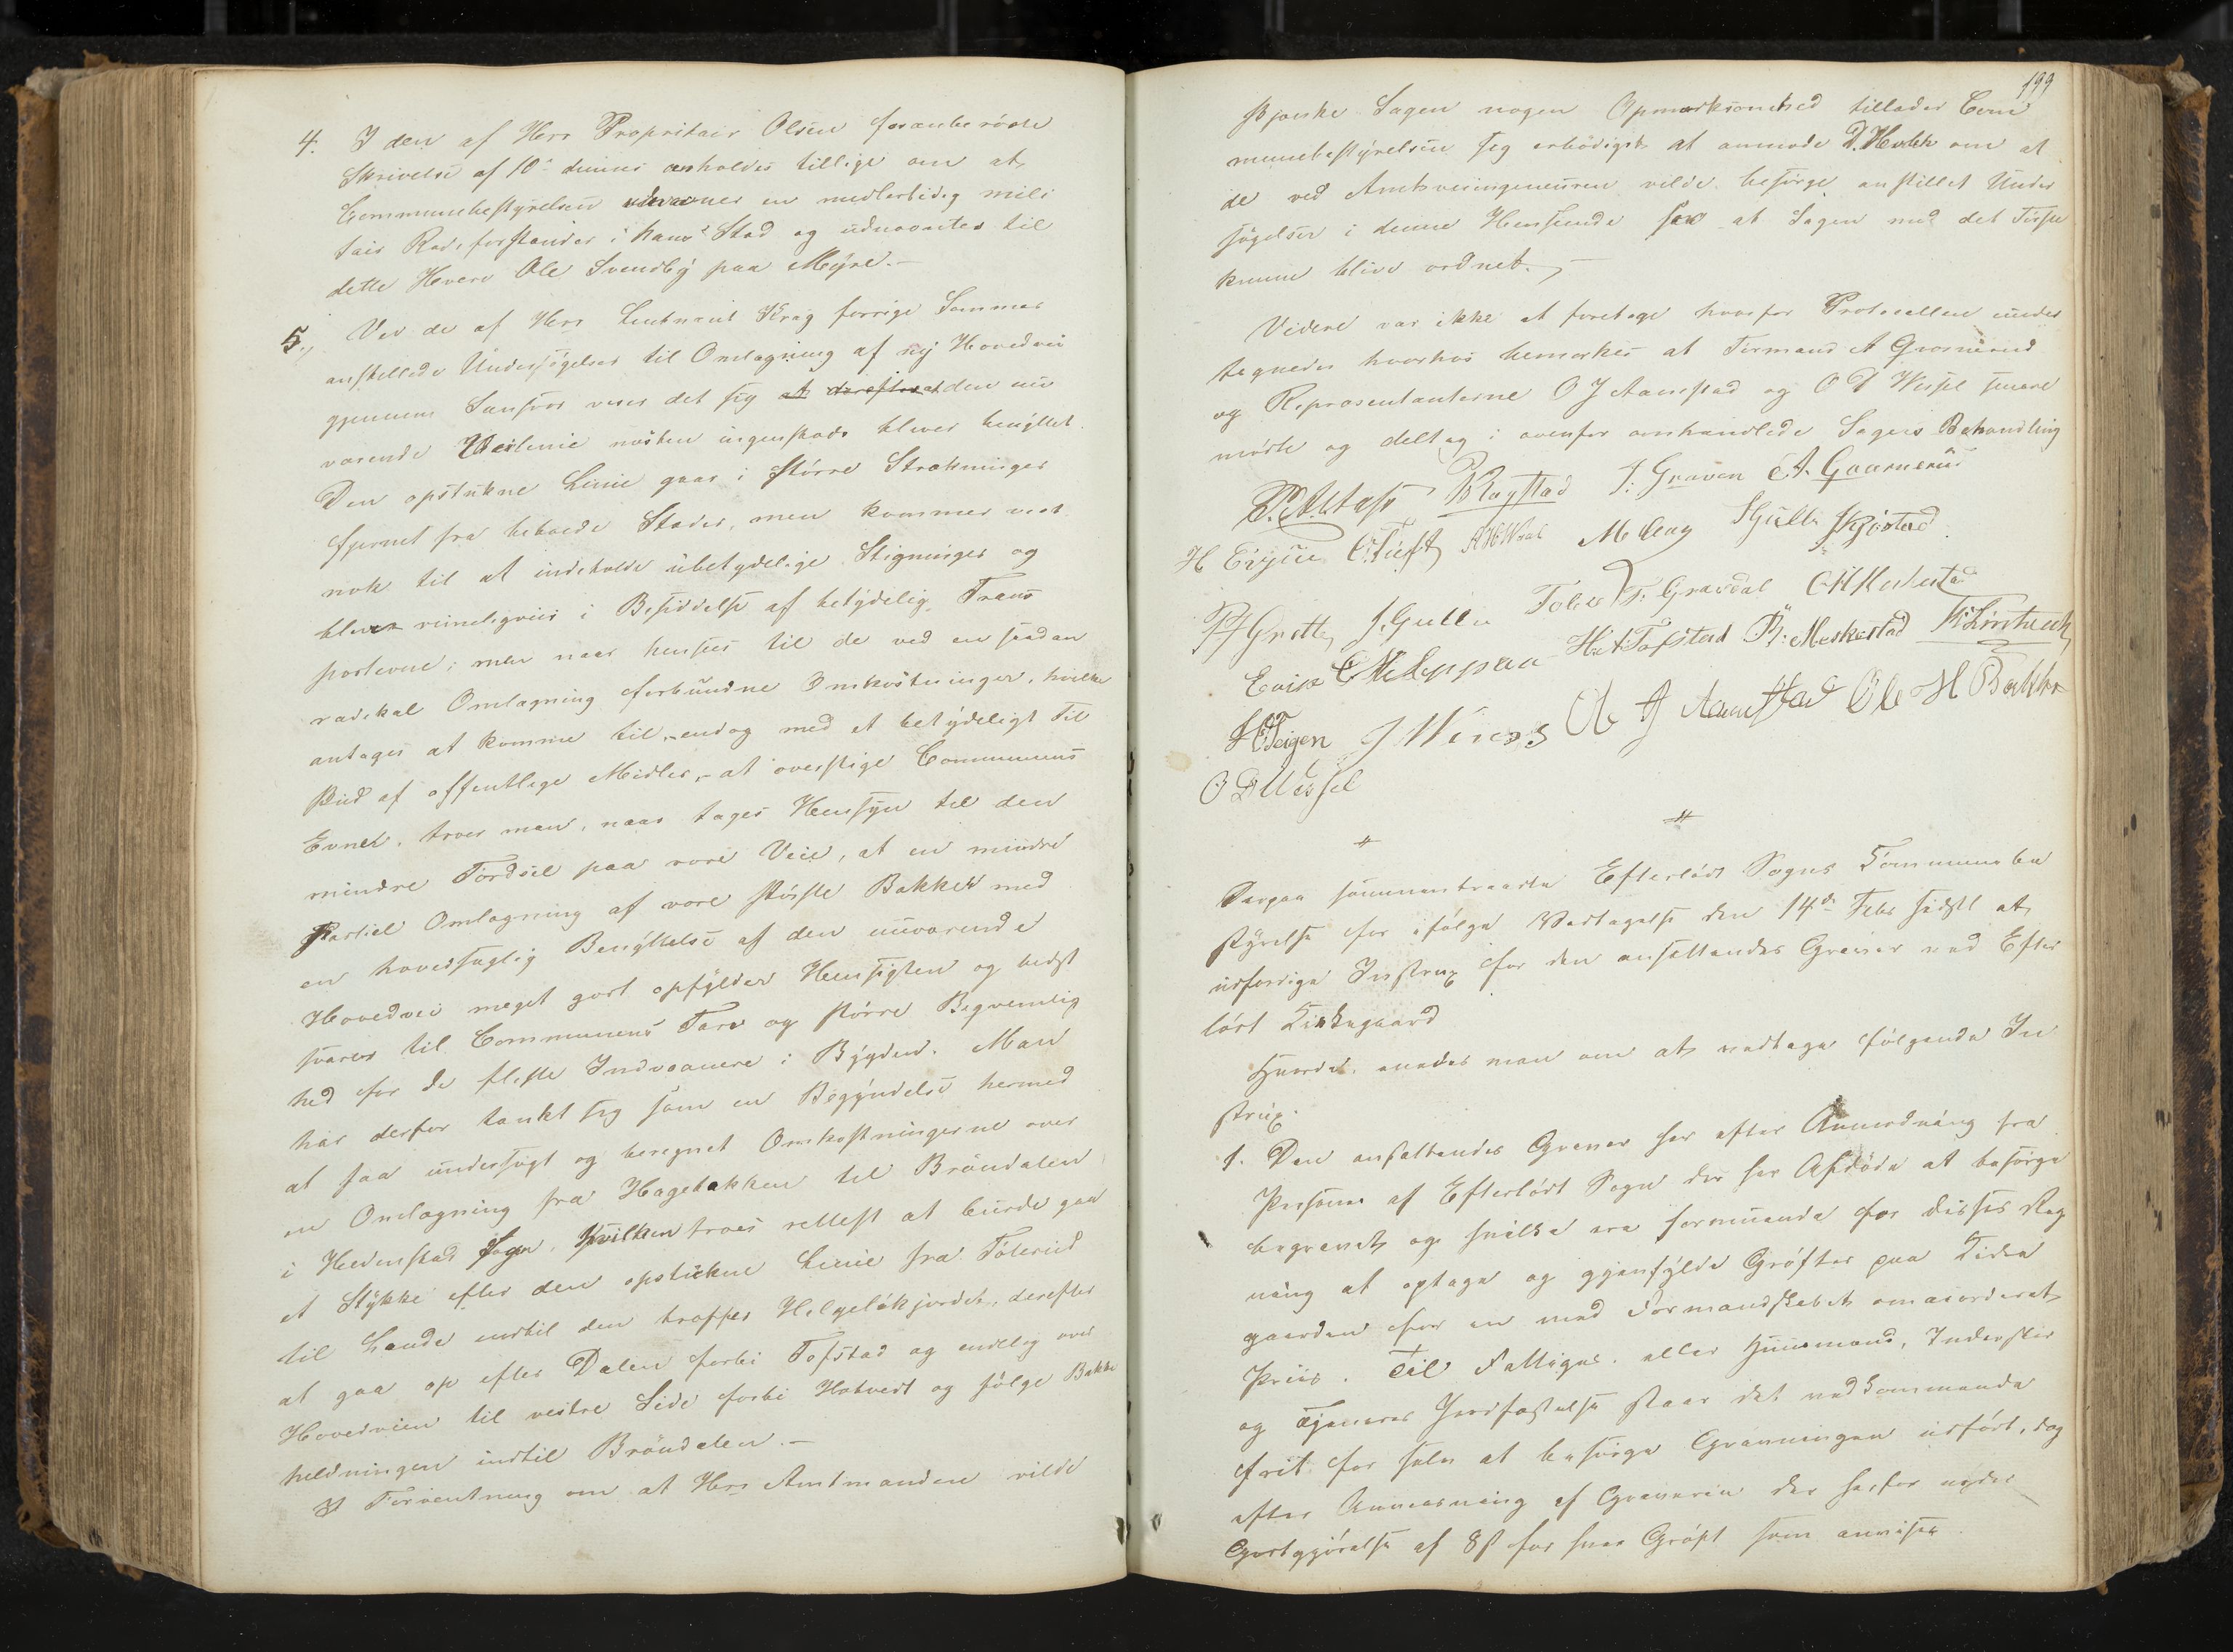 4. I den af Herr Propritair Olsen foranberörte
Skrivelse af 10de dennes anholdes tillige om at
Communebestyrelsen udnævner en midlertidig mili
tair Rodeforstander i hans Sted og udnævntes til
dette Hverv Ole Svendby paa Myre.-
5., Ved de af Herr Leutnant Krag forrige Sommer
anstillede Undersögelser til Omlægning af ny Hovedvei
gjennem Sandsvær viser det sig at derefter at den nu
værende Veilinie næsten ingensteds bliver benyttet.
Den opstukne Linie gaar i större Strækninger
fjernet fra beboede Steder, men kommer vist
nok til at indeholde ubetydelige Stigninger og
bliver rimeligviis i Besiddelse af betydelig Trans
portevne; men naar henses til de ved en saadan
radikal Omlægning forbundne Omkostninger, hvilke
antages at komme til, - endog med et betydeligt Til
skud af offentlige Midler, - at overstige Communens
Evner, troer man, naar tages Hensyn til den
mindre Færdsel paa vore Veie, at en mindre
Partiel Omlægning af vore störste Bakker med
en hovedsaglig Benyttelse af den nuværende
Hovedvei meget godt opfylder Hensigten og bedst
svarer til Communens Tarv og större Beqvemlig
hed for de fleste Indvaanere i Bygden. Man
har derfor tænkt sig som en Begyndelse hermed
at faa undersögt og beregnet Omkostningerne over
en Omlægning fra Hagebakken til Bröndalen
i Hedenstad Sogn, hvilken troes rettest at burde gaa
et Stykke efter den opstukne Linie fra Töterud
til Lande indtil den træffer Helgelökjordet, derefter
at gaa op efter Dalen forbi Tofstad og endelig over
Hovedveien til vestre Side forbi Hotvedt og fölge Bakke
heldningen indtil Bröndalen.-
I Forventning om at Herr Amtmanden vilde
199
skjænke Sagen nogen Opmærksomhed tillader Com
munebestyrelsen sig erbödigst at anmode D. Herlh om at
de ved Amtsveiingeneuren vilde besörge anstillet Under
sögelser i denne Henseende for at Sagen med det Förste
kunne blive ordnet.,-
Videre var ikke at foretage hvorfor Protocollen under
tegnedes hvorhos bemærkes at Formand A Gaasnerud
og Repræsentanterne O J Aamstad og O D Wessel senere
mödte og deltog i ovenfor omhandlede Sagers Behandling
Bagstad J: Graven A. Gaarnerud
H C. Tuft Skjöstad
P J Grette J. Gullie T. Gravdal
H: A Tofstad
H Teigen O J Aamstad Ole H Bakke
O D Wessel
Derpaa sammentraadte Efterlödt Sogns Kommunebe
styrelse for ifölge Vedtagelse den 14de Febr sidstl at
udfærdige Instrux for den ansættendes Graver ved Efter
lödt Kirkegaard
Hvordes enedes man om at vedtage fölgende In
strux.
1. Den ansættendes Graver har efter Anmodning fra
Personer af Efterlödt Sogn der har Afdöde at besörge
begravet og hvilke ere formuende for disses Reg
ning at optage og gjenfylde Gröfter paa Kirke
gaarden for en med Formandskabet omacorderet
Priis. Til Fattiges, eller Huusmænd, Inderster
og Tjeneres Jordfæstelse staar det vedkommende
frit for selv at besörge Gravningen udfört, dog
efter Anvisning af Graveren der herfor nyder
Godtgjörelse af 8 s for hver Gröft som anvises.